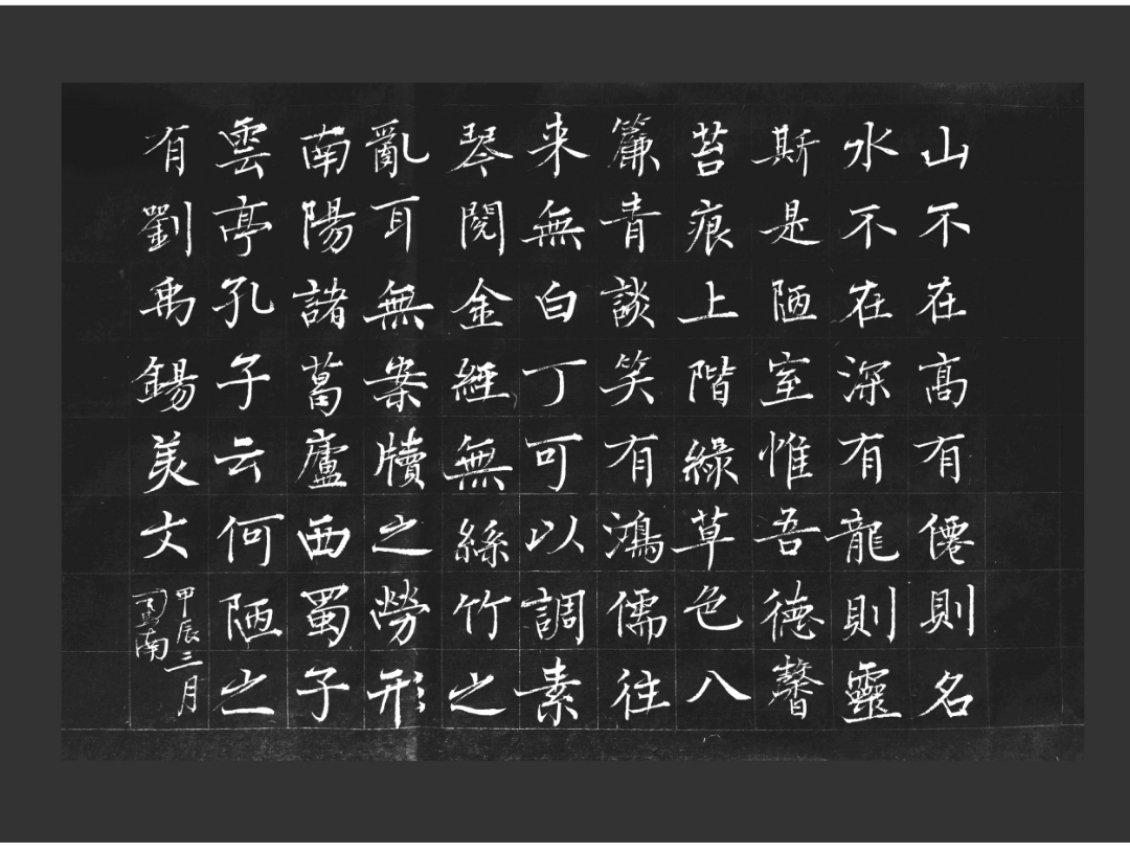 山不在髙有僊則名
水不在深有龍則靈
斯是陋室惟吾德馨
苔痕上階綠草色八
簾青談笑有鴻儒往
来無白丁可以調素
琴閱金經無絲竹之
亂耳無案牘之勞形
南陽諸葛廬西蜀子
雲亭孔子云何陋之
有劉禹錫美文
甲辰三月
南